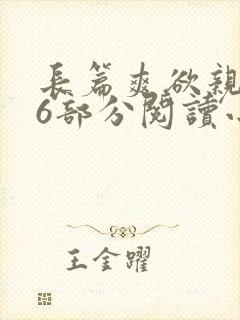 長篇爽欲親
6部分閱讀小
王金躍